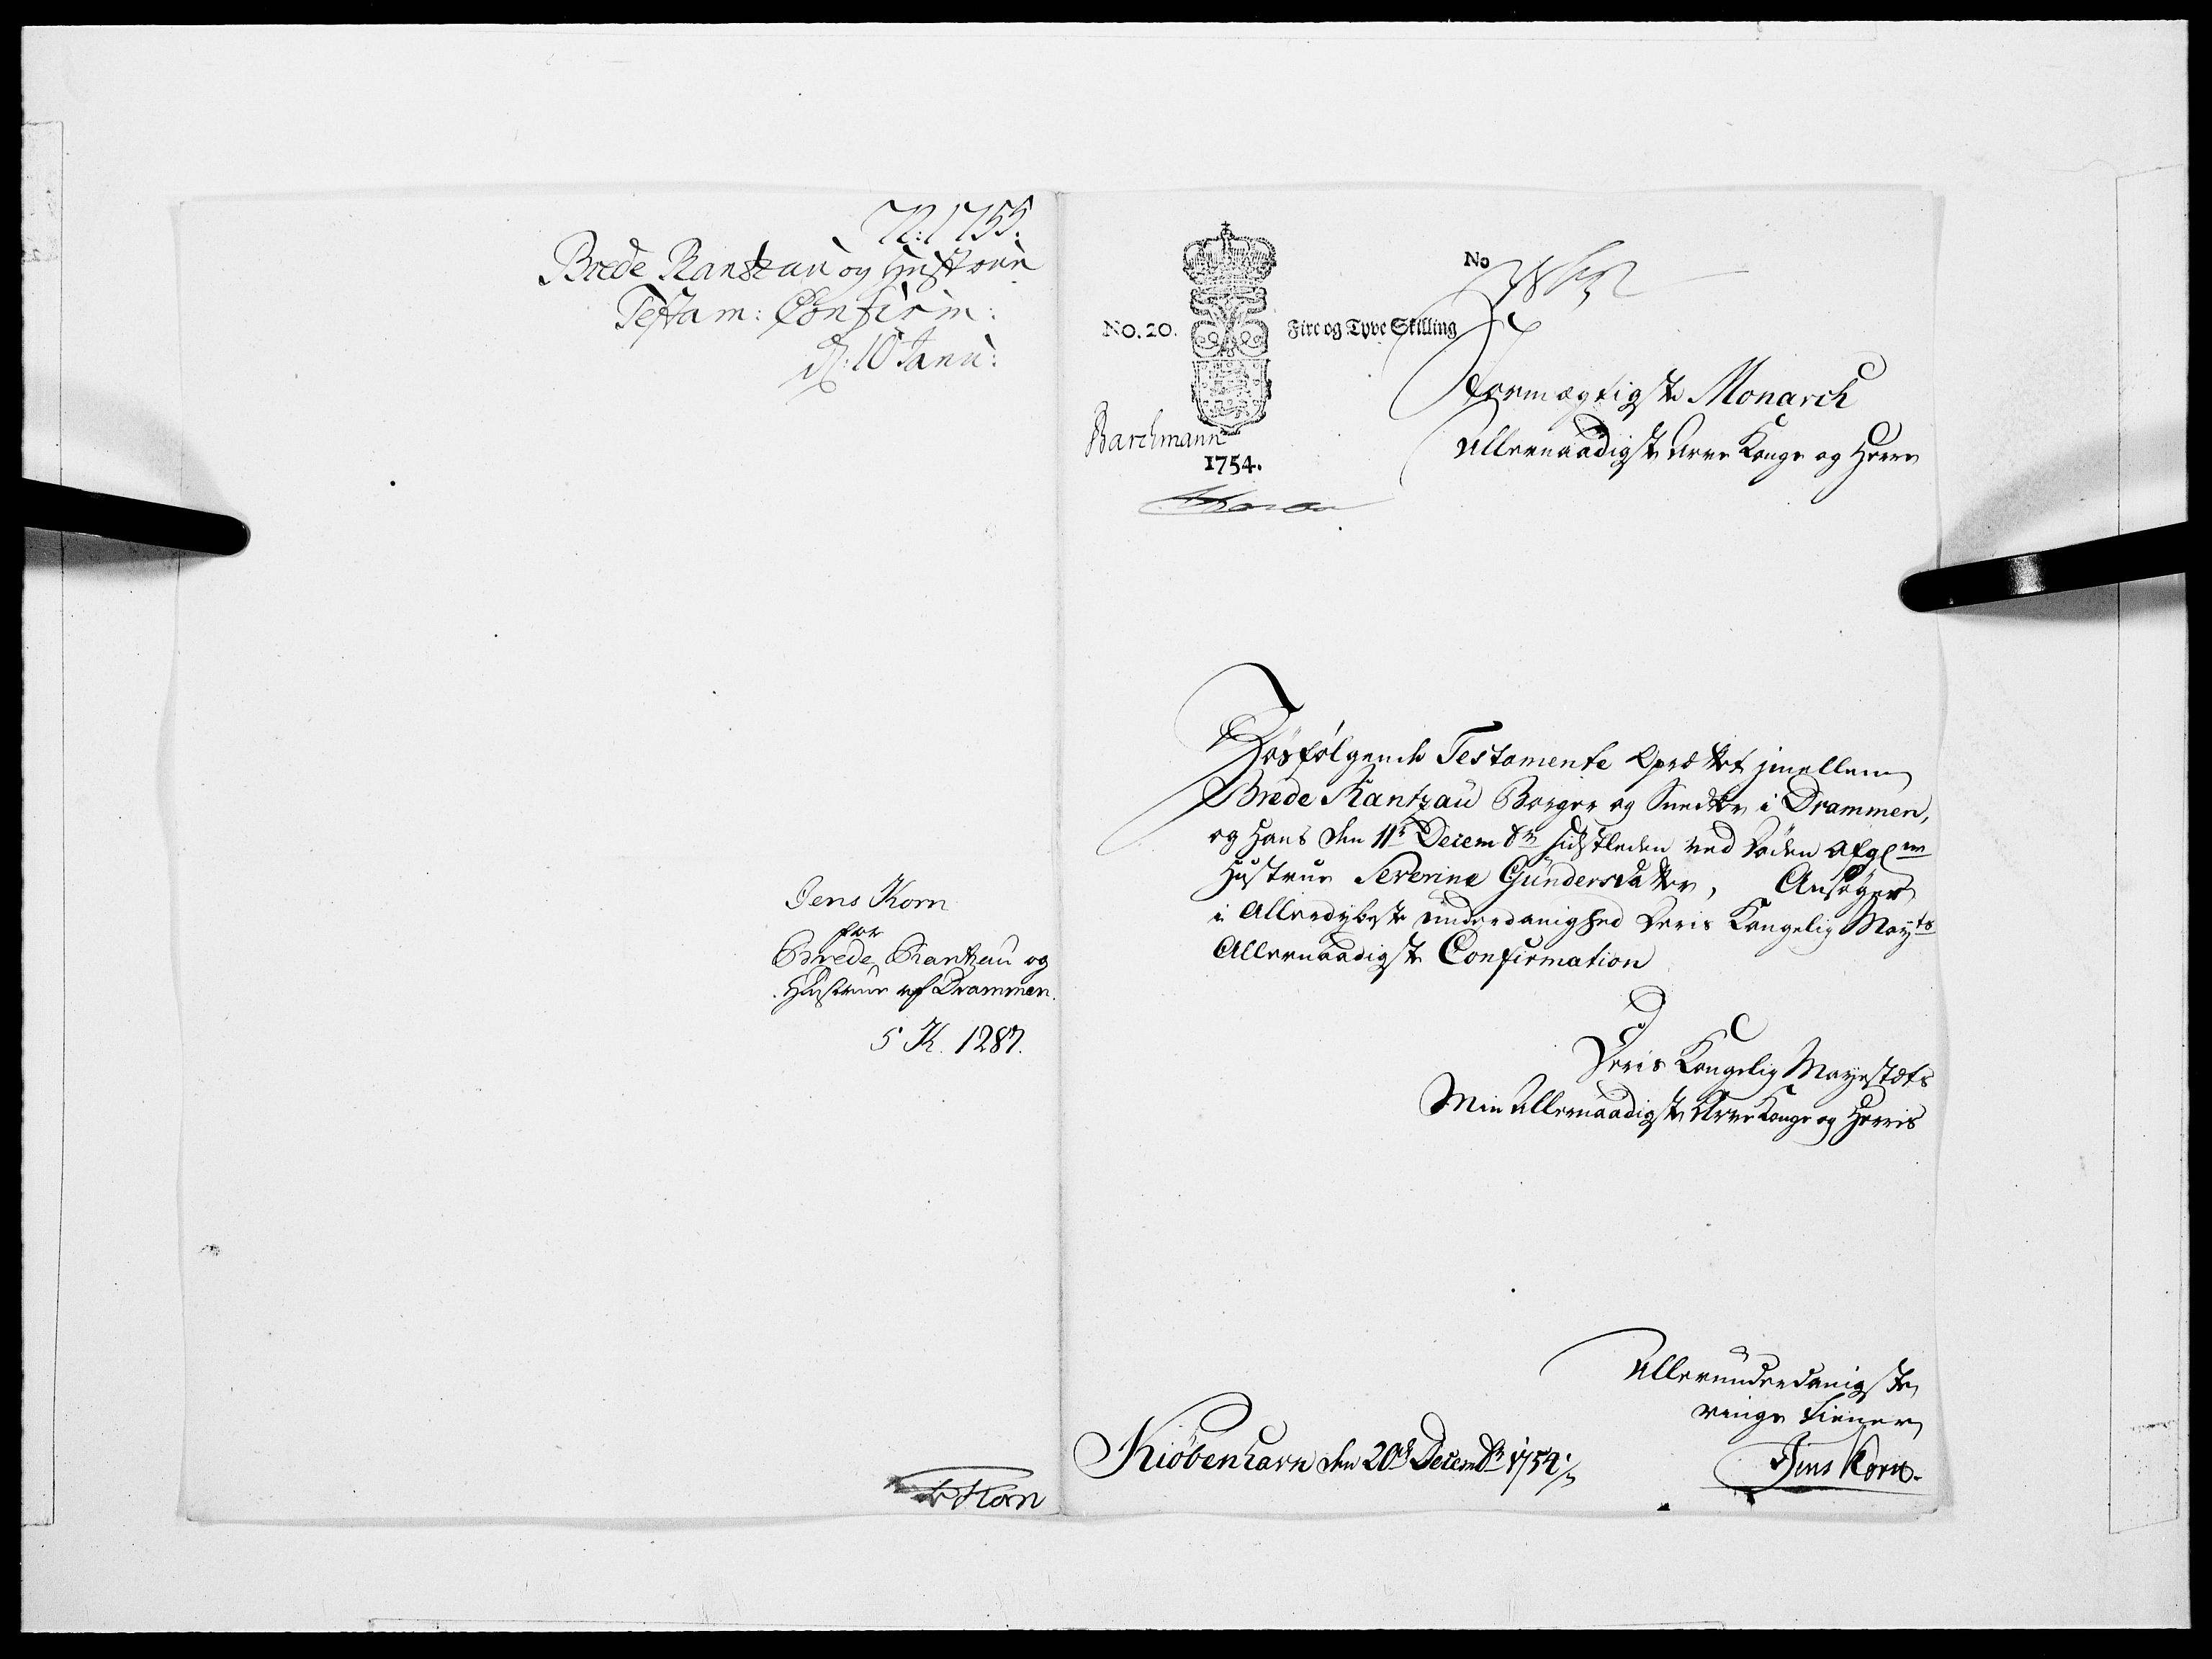 N: 1755.
Brede Rantzau og Hustrue
Testam: Confirm:
d: 10 Janu:
Jens Korn
for
Brede Rantzau og
Hustrue af Drammen.
5 K. 1287.
Korn
No
No. 20. Fire og Tyve Skilling
Barchmann
1754.
Stormægtigste Monarch
Allernaadigste Arve Konge og Herre
Hosfølgende Testamente Oprættet imellem
Brede Rantzau Borger og Snedker i Drammen,
og Hans den 11te Decembr sidstleden ved Døden afgl:ne
Hustrue Severine Gündersdatter, Ansøger
i Allerdybeste underdanighed Deris Kongelig May:ts
Allernaadigste Confirmation
Deris Kongelig Mayestæts
Min Allernaadigste Arve Konge og Herris
Allerunderdanigste
ringe tiener
Jens Korn.
Kiøbenhavn den 20de Decembr 1754